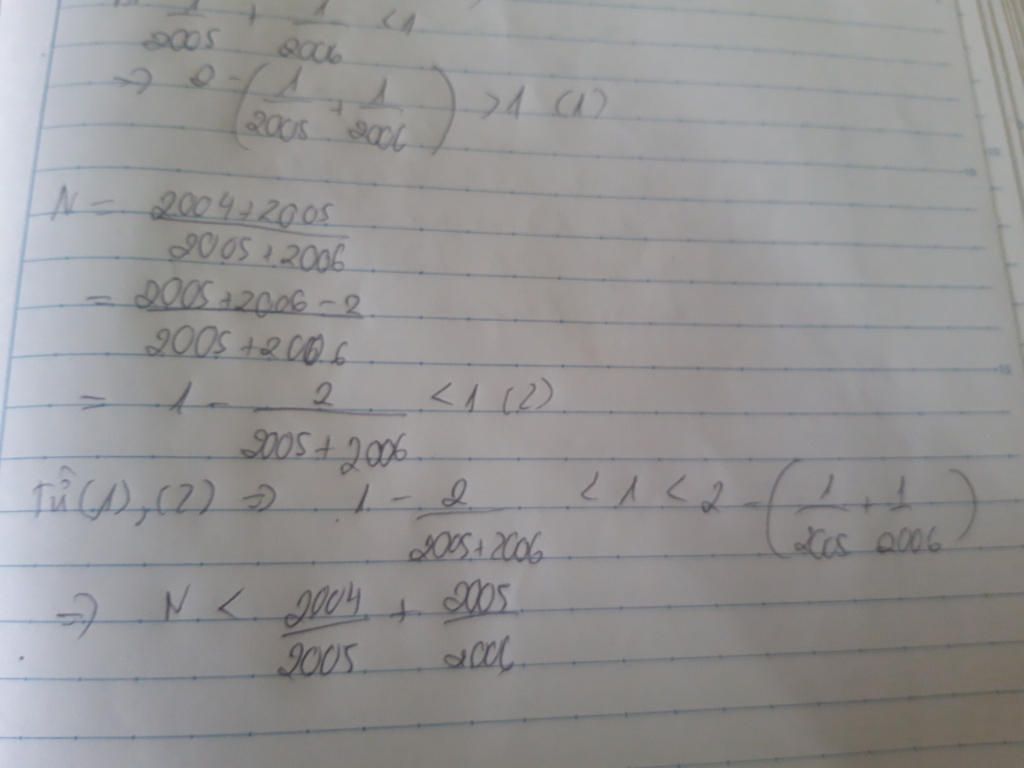 1/2005 + 1/2006 < 1
=> 2 - (1/2005 + 1/2006) > 1 (1)
N = (2004+2005)/(2005+2006)
= (2005+2006-2)/(2005+2006)
= 1 - 2/(2005+2006) < 1 (2)
Từ (1), (2) => 1 - 2/(2005+2006) < 1 < 2 - (1/2005 + 1/2006)
=> N < 2004/2005 + 2005/2006